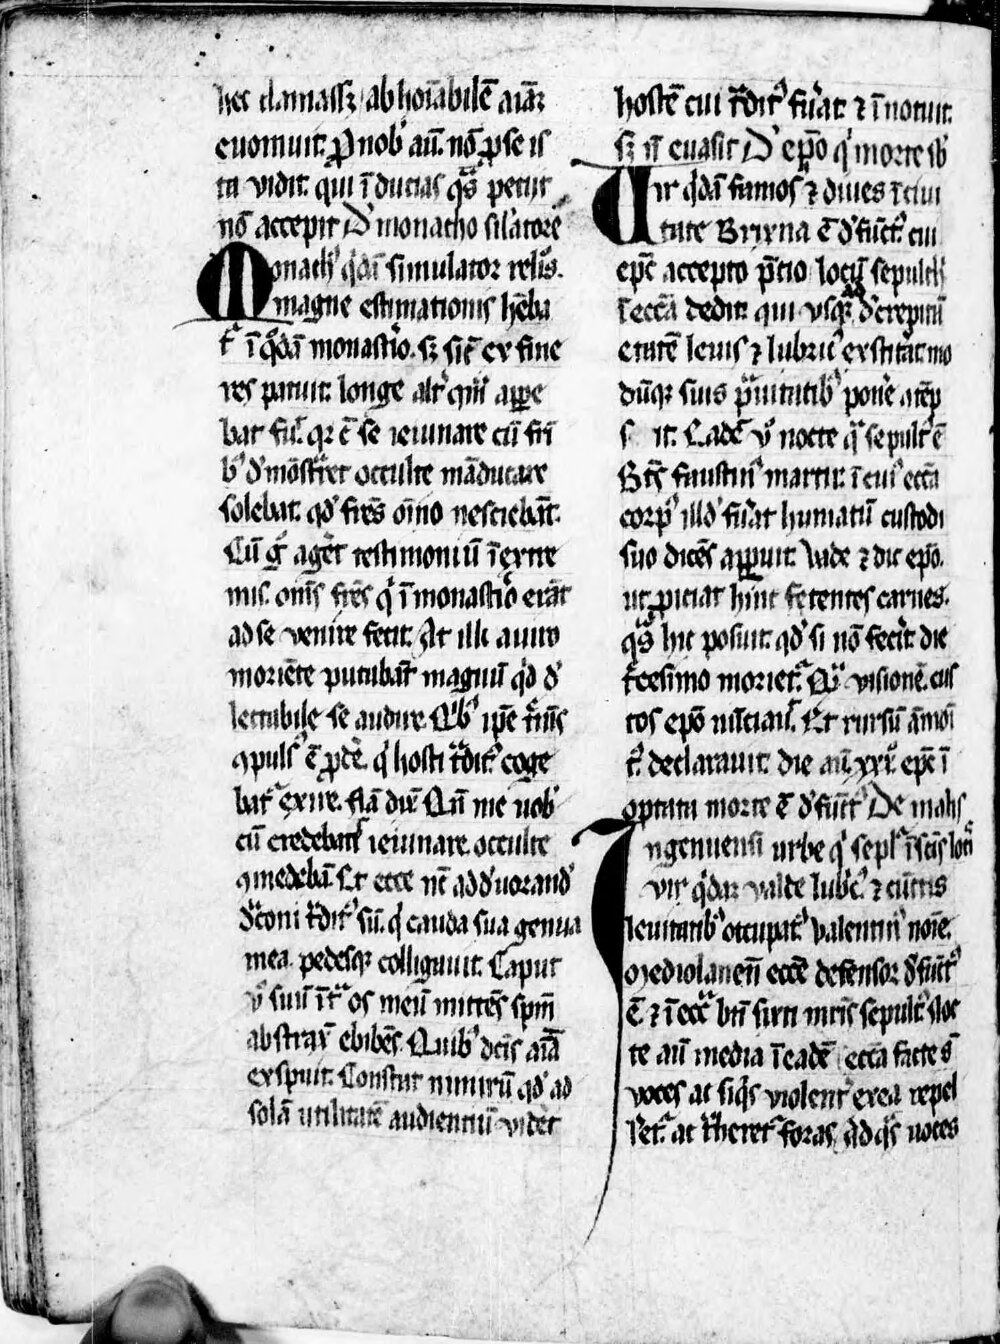 hec clamass; ab hoīabilē aīaʒ
euomuit. ꝓ nob' aū. nō ꝓ se is
ta vidit. qui īducias q̄s petiit
nō accepit D' monacho silatore
Monach' q̄dā simulator relig.
magne estimationis hēba
t' ī q̊dā monastio. sʒ sic' ex fine
res patuit. longe alit' qm̄ appe
bat fu'. qʒ c̄ se ieiunare cū fri
b' d'mōstret occulte māducare
solebat. qd' frēs oīno nesciebāt.
Cū g' aget testimoniū ī extre
mis. om̄s frēs q' ī monastio erāt
ad se venire fecit. At illi auito
moriēte putabāt magnū q̄d d'
lectabile se audire. Qib' ipe trim̄s
ɔpuls' ē ꝓdē. q' hosti t̄dit' coge
bat' exire. Nā dix' Qn̄ me uob'
cū credebat' ieiunare. occulte
ɔmedebā. Et ecce nc̄ ad d'uorand'
d'coni t̄dit' sū. q' cauda sua genua
mea. pedesqʒ colligauit. Caput
v̊ suū īt' os meū mittēs spm̄
abstrax' ebibēs. Quib' dc̄is aīā
exspuit. Constat nimirū qd' ad
solā utilitatē audientiū videt
hostē cui t̄dit' fu'at ⁊ īnotuit.
sʒ n̄ euasit D' epo q' morte sb'
Vir q̄dā famos' ⁊ diues ī ciui
tate Brixna ē d'fūct'. cui
epc̄ accepto p̄tio locū sepulch'
ī ecc̄a dedit. qui vsqʒ ad d'crepitā
etatē leuis ⁊ lubric' exstit'at. mo
dūqʒ suis p̄uitatib' pone' ɔtēp
s it. Eadē v̊ nocte q' sepult' ē
Bt̄s faustin' martir. ī cui' ecc̄a
corp' illd' fu'at humatū custodi
suo dicēs appuit. Vade ⁊ dic epo.
ut ꝓiciat hinc fetentes carnes.
q̄s hic posuit. qd' si nō fecit. die
t'cesimo moriet'. Qā visionē. cus
tos epo nūciaū. Et rursū āmoī
t'. declarauit. die aū. xxx. epc̄ ī
optata morte ē d'fūct' De malis
In genuensi urbe q' sepl' ī scīs loc'
vir q̄dā valde lubc' ⁊ cūctis
leuitatib' occupat'. Valentin' noīe.
Mediolanen̄ ecc̄e defensor d'fūct'
ē ⁊ ī ecc̄a bti sixti mr̄is sepult'. Noc
te aū media ī eadē ecc̄a facte s̄
voces ac siq̄s violent' ex ea repel
let'. ac t'heret' foras, Ad q̄s uoces